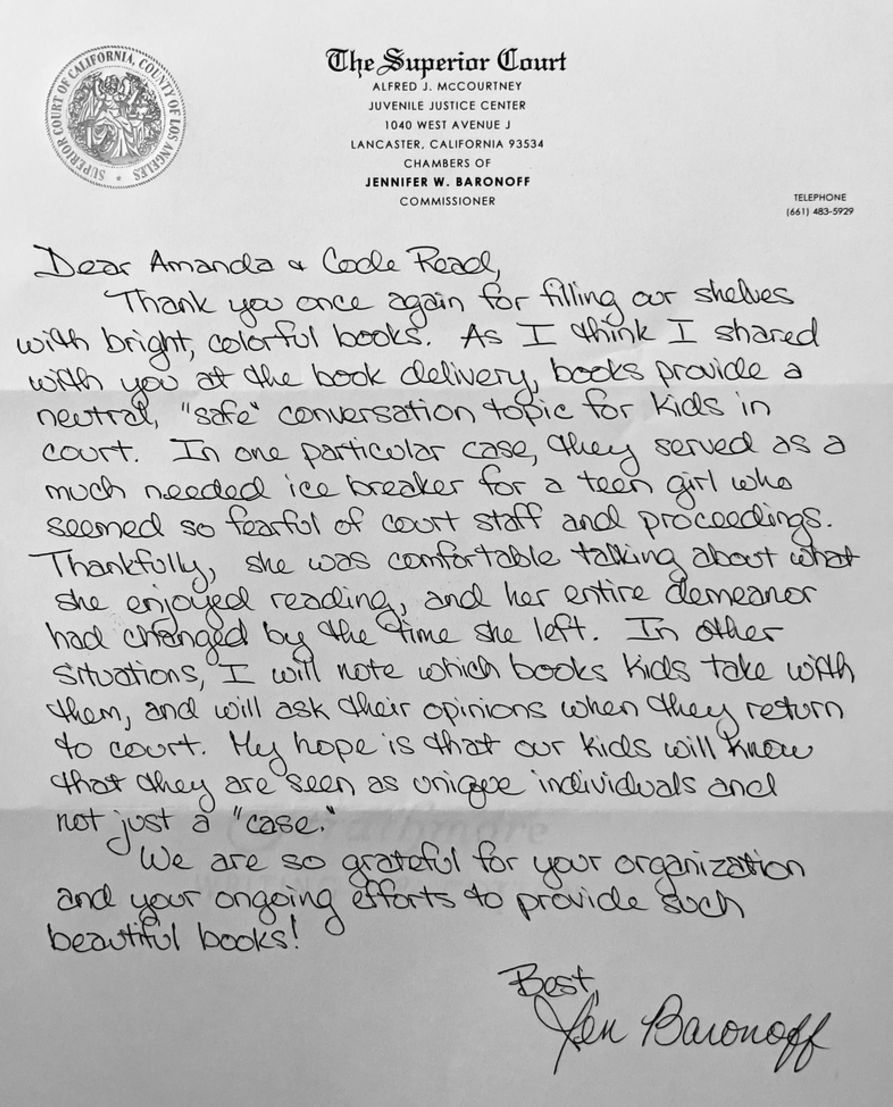 SUPERIOR COURT OF CALIFORNIA, COUNTY OF LOS ANGELES
The Superior Court
ALFRED J. McCOURTNEY
JUVENILE JUSTICE CENTER
1040 WEST AVENUE J
LANCASTER, CALIFORNIA 93534
CHAMBERS OF
JENNIFER W. BARONOFF
COMMISSIONER
TELEPHONE
(661) 483-5929
Dear Amanda & Code Read,
Thank you once again for filling our shelves
with bright, colorful books. As I think I shared
with you at the book delivery, books provide a
neutral, "safe" conversation topic for kids in
court. In one particular case, they served as a
much needed ice breaker for a teen girl who
seemed so fearful of court staff and proceedings.
Thankfully, she was comfortable talking about what
she enjoyed reading, and her entire demeanor
had changed by the time she left. In other
situations, I will note which books kids take with
them, and will ask their opinions when they return
to court. My hope is that our kids will know
that they are seen as unique individuals and
not just a "case."
We are so grateful for your organization
and your ongoing efforts to provide such
beautiful books!
Best,
Jen Baronoff